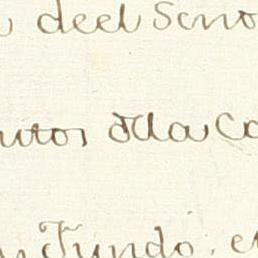 deel Seno
utos dla Ca
y Fundo, e